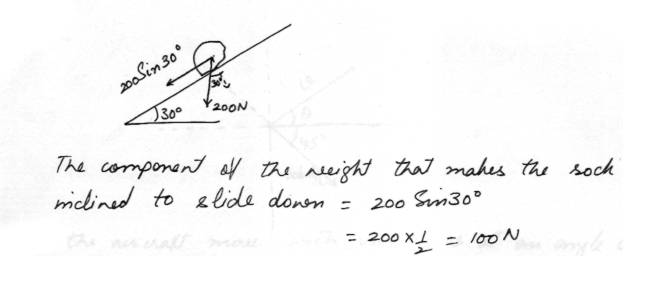 200Sin30°
30°
200N
30°
The component of the weight that makes the sock
inclined to slide down = 200 Sin30°
= 200 x 1/2 = 100 N